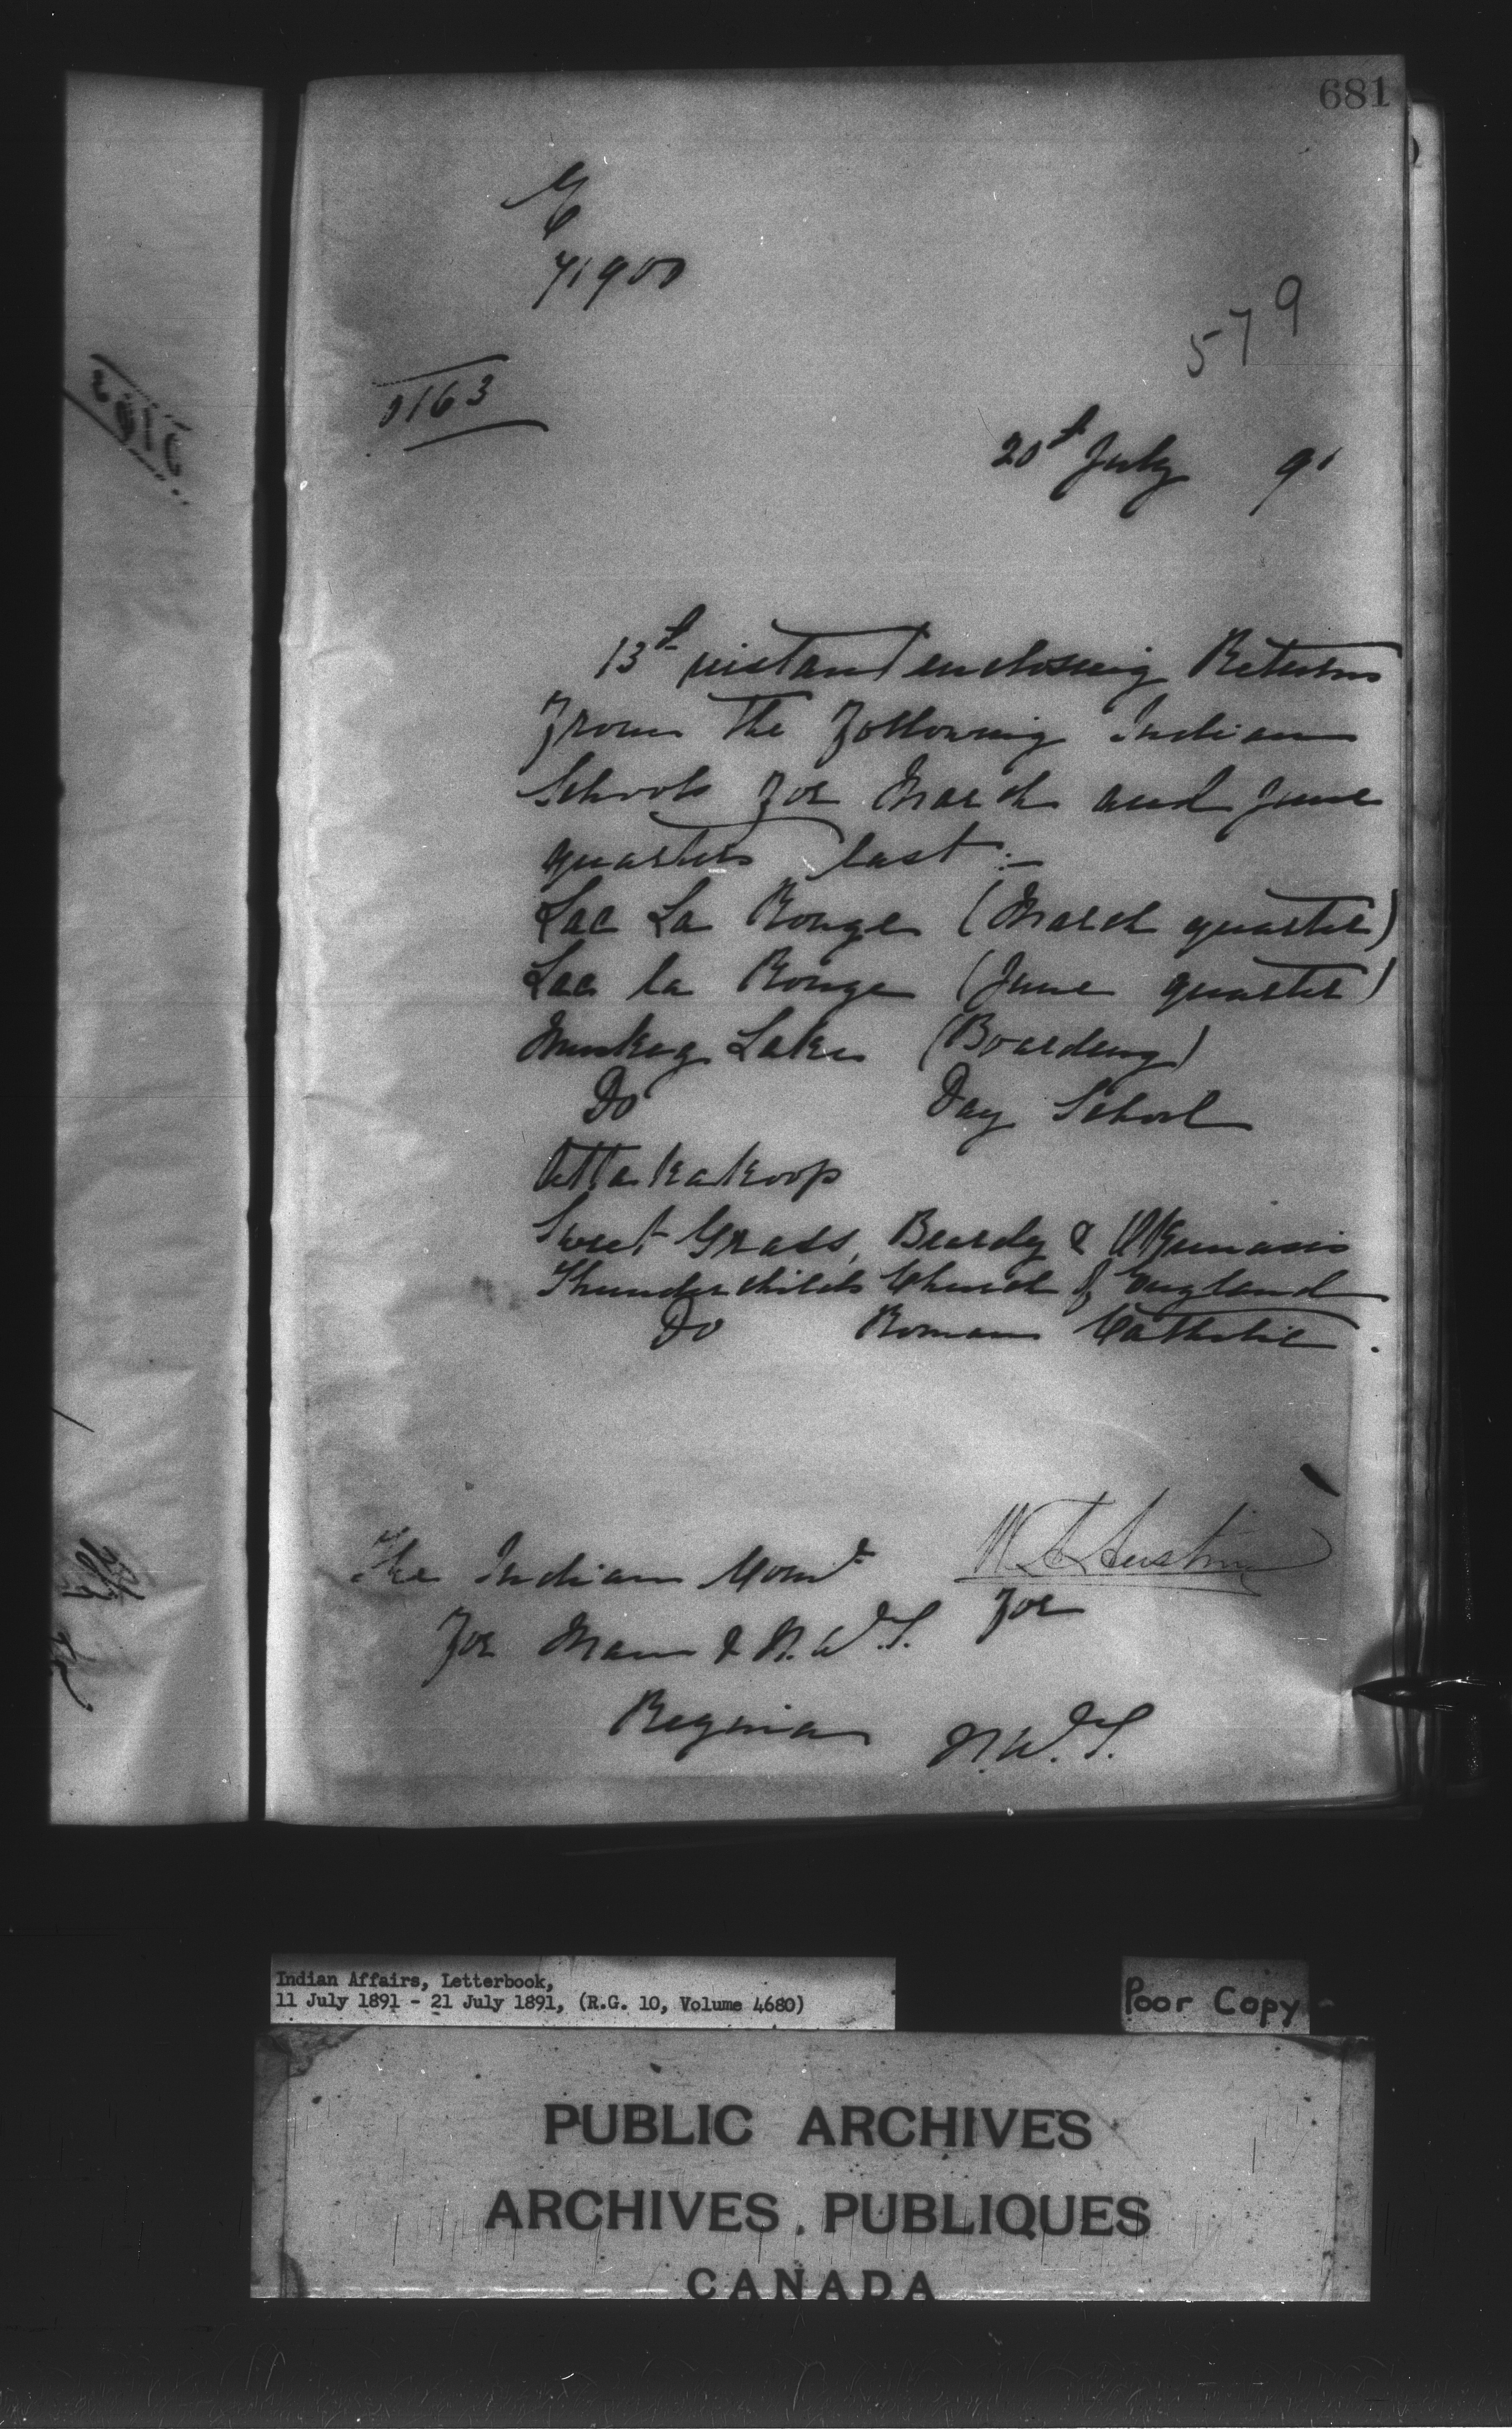 681
71900
579
163
20th July 91
13th instant enclosing Returns
from the following Indian
Schools for March and June
quarters last :-
Lac La Ronge (March quarter)
Lac la Ronge (June quarter)
Muskeg Lake (Boarding)
Do Day School
Attakakoop
Sweet Grass, Beardy & Okemasis
Thunderchilds Church of England
Do Roman Catholic.
The Indian Comr
W A Austin
for Man & N.W.T.
for
Regina N.W.T.
Indian Affairs, Letterbook,
11 July 1891 - 21 July 1891, (R.G. 10, Volume 4680)
Poor Copy
PUBLIC ARCHIVES
ARCHIVES PUBLIQUES
CANADA